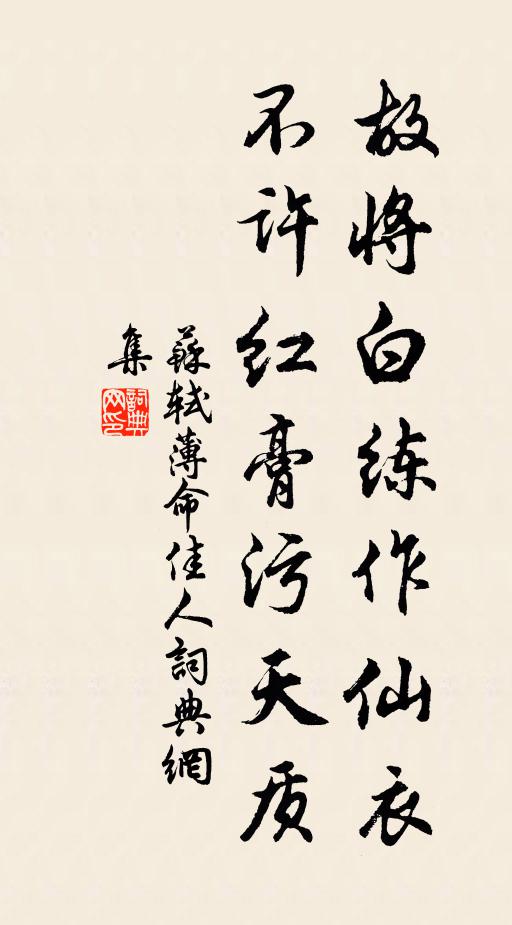 故將白练作仙衣
不许红膏污天质
蘇軾薄命佳人詞典網
集
詞典
网印